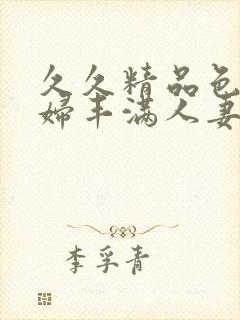 久久精品色
婦丰满人妻
李孚青